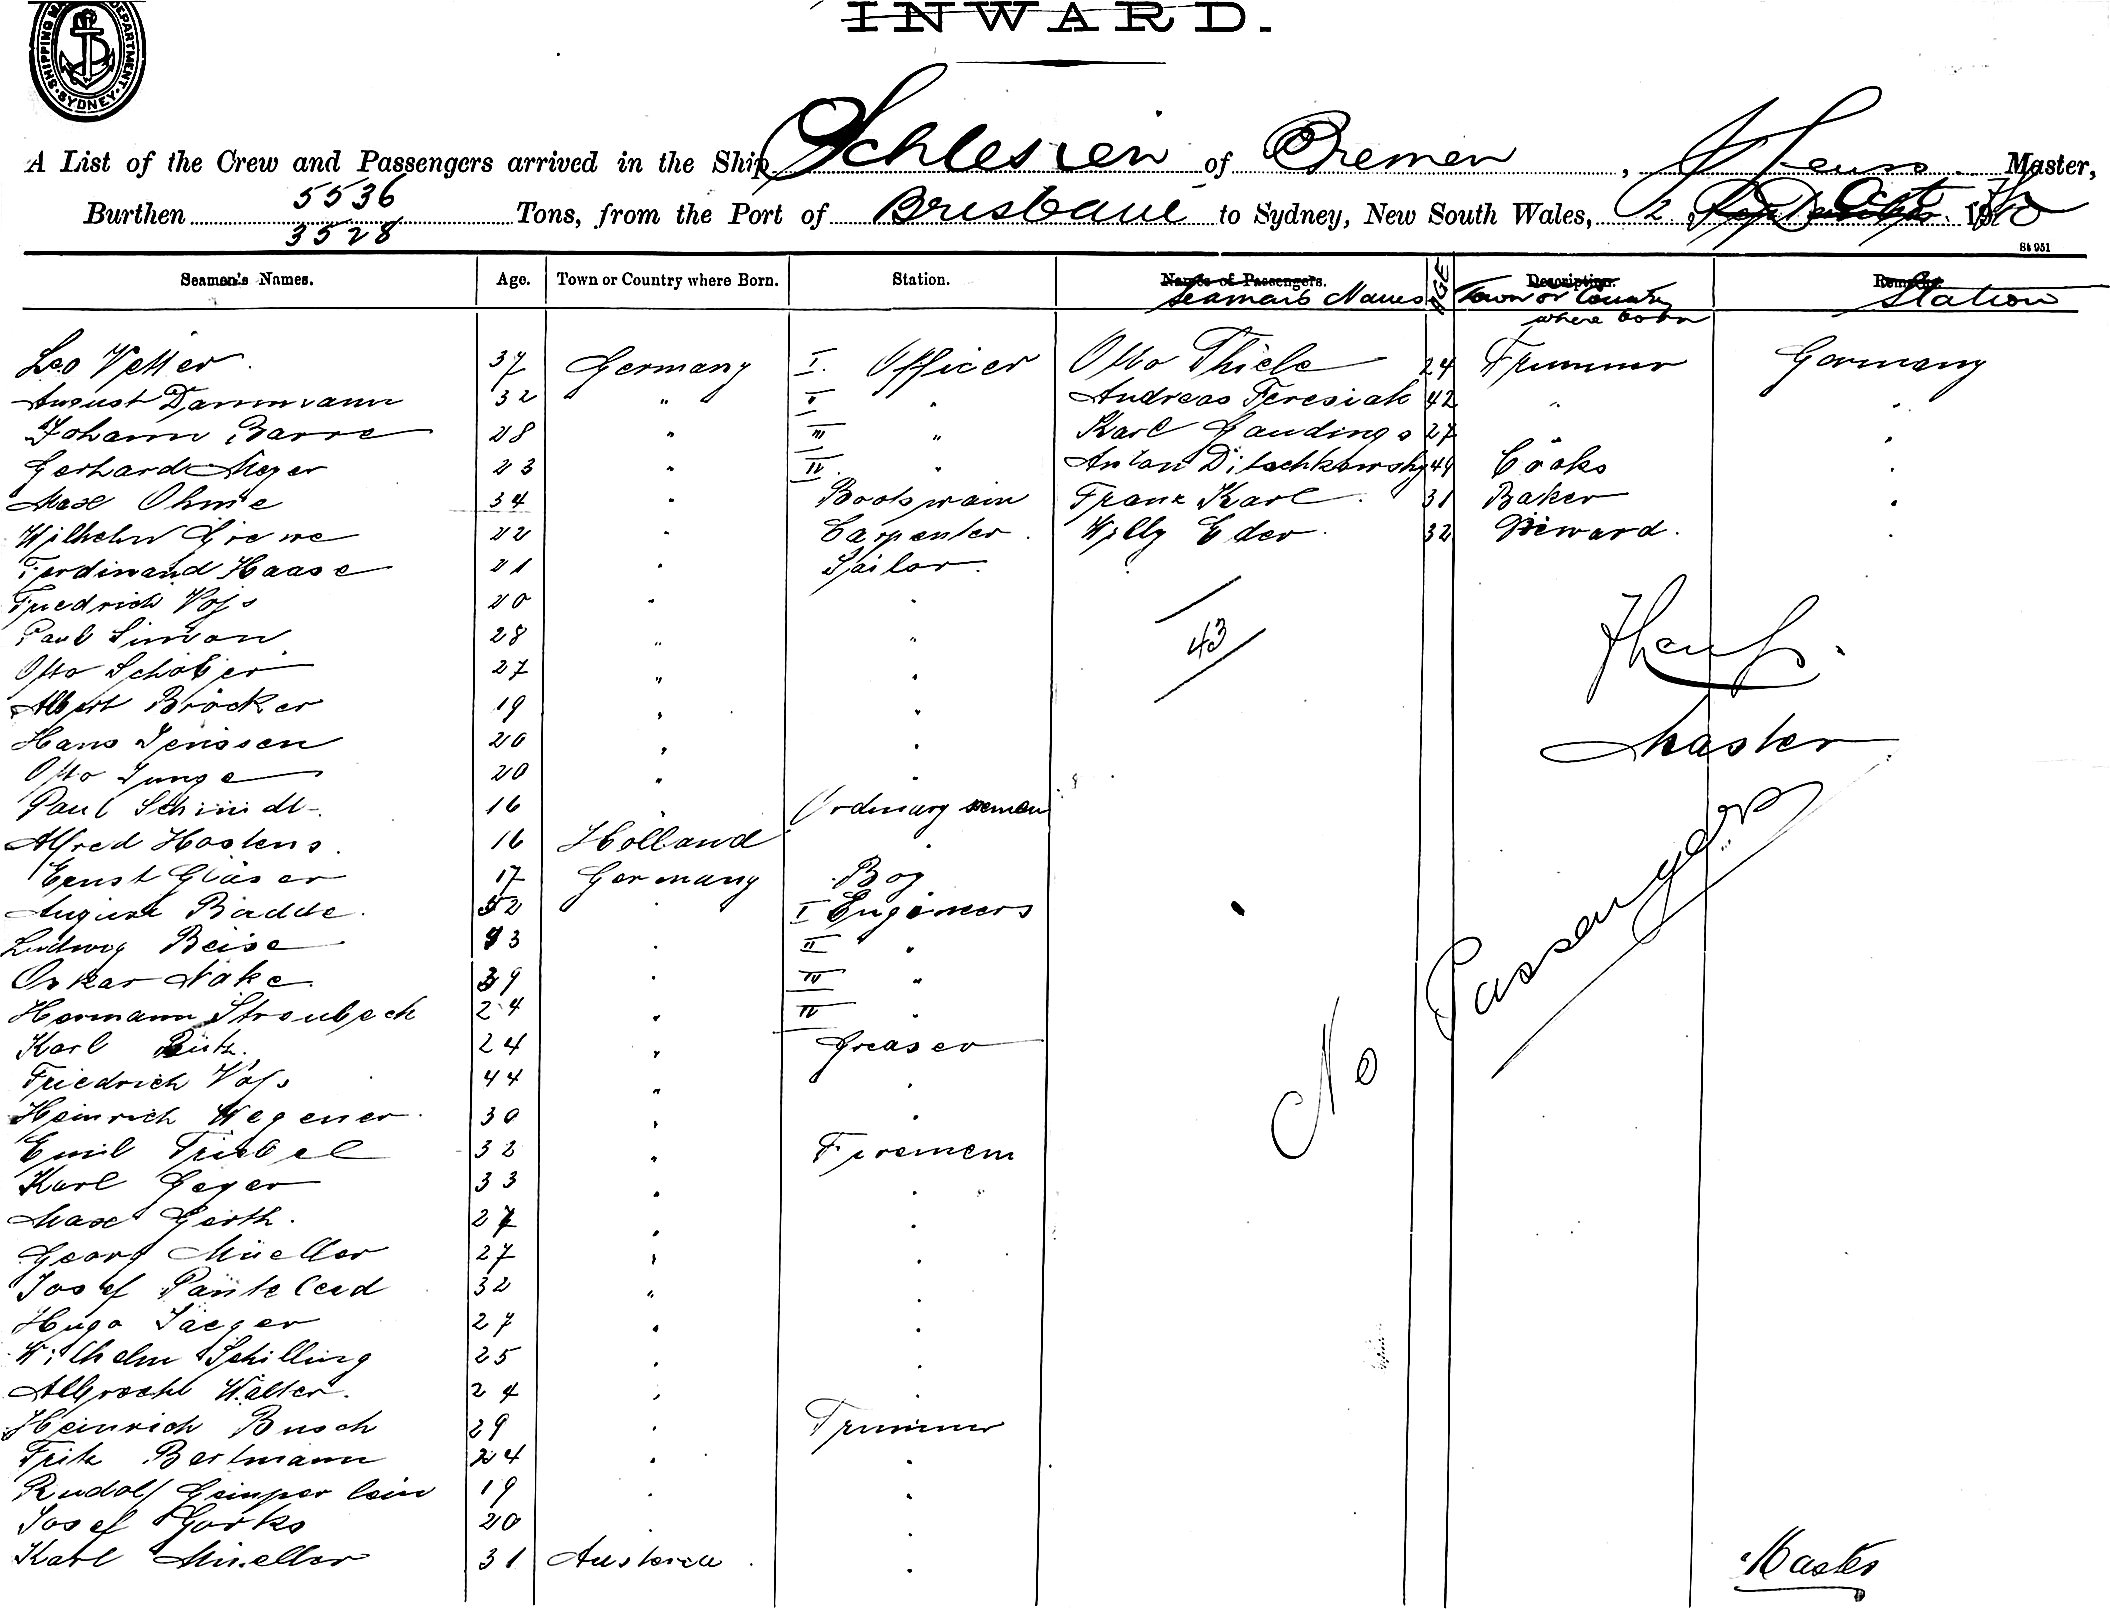 SHIPPING MA DEPARTMENT. SYDNEY.
INWARD.
A List of the Crew and Passengers arrived in the Ship Schlesien of Bremen, Master,
5536
Burthen Tons, from the Port of Brisbane to Sydney, New South Wales, 2 Oct
3528
St 951
Seamen's Names. Age. Town or Country where Born. Station. Names of Passengers. Seaman's Names AGE Description. Town or Country where born Remarks. Station
Leo Vetter 37 Germany I. Officer Otto Thiele 24 Trimmer Germany
August Dammann 32 " II " Andreas Feresiak 42 " "
Johann Barre 28 " III " Karl Gaudings 27 " "
Gerhard Meyer 23 " IV " Anton Ditschkowsky 49 Cooks "
Max Ohme 34 " Bootswain Franz Karl 31 Baker "
Wilhelm Grewe 22 " Carpenter Willy Eder 32 Steward. "
Ferdinand Haase 21 " Sailor
Friedrich Voss 20 " "
Paul Simon 28 " "
43
Otto Schober 27 " "
Albert Bröcker 19 " "
Hans Jenssen 20 " "
Master
Otto Junge 20 " "
Paul Schmidt 16 " Ordinary semen
Alfred Hostens 16 Holland "
Ernst Gläser 17 Germany Boy
August Badde 52 " I Engineers
Ludwig Beise 33 " II "
Oskar Nake 39 " III "
Hermann Straubech 24 " IV "
No Passengers
Karl 24 " Greaser
Friedrich Voss 44 " "
Heinrich Wegener 30 " "
Emil Triebel 32 " Firemen
Karl Geyer 33 " "
Max Gerth 27 " "
Georg Müeller 27 " "
Josef 32 " "
Hugo Jaeger 27 " "
Wilhelm Schilling 25 " "
Albrecht Walter. 24 " "
Heinrich Busch 29 " Trimmer
Fritz Bertmann 24 " "
Rudolf Gemperlein 19 " "
Josef Gorks 20 " "
Karl Müeller 31 "
Master